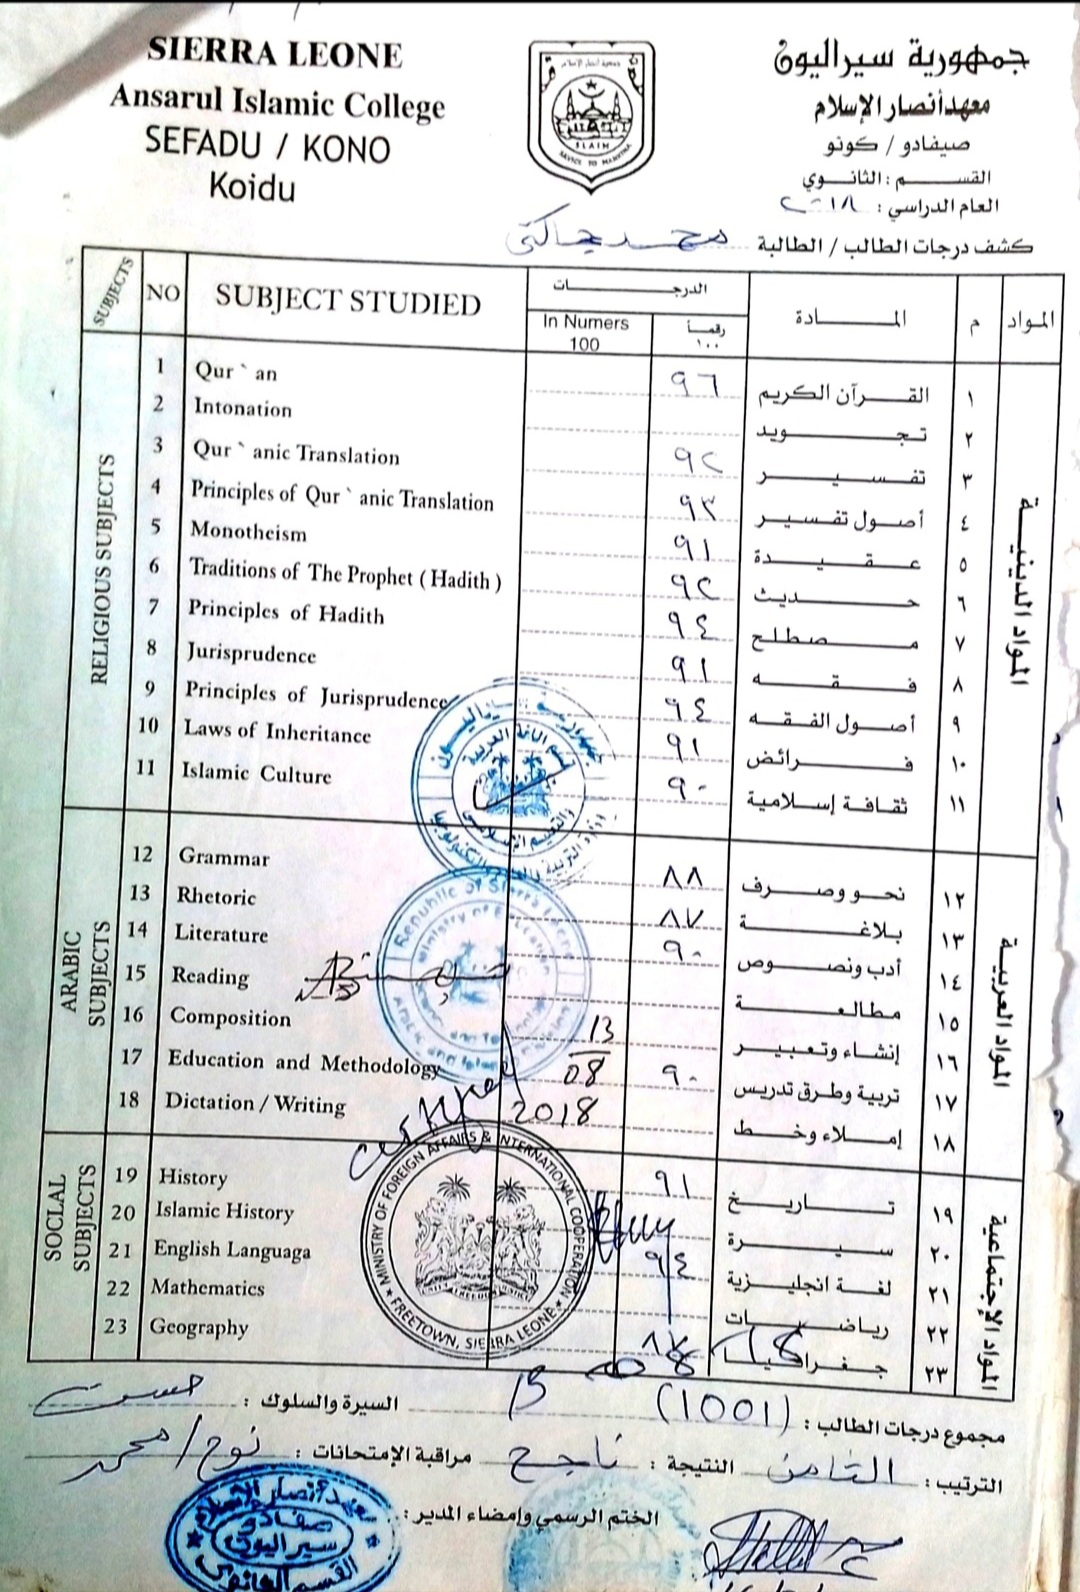 SIERRA LEONE
Ansarul Islamic College
SEFADU / KONO
Koidu
SLAIM
جمهورية سيراليون
معهد أنصار الإسلام
صيفادو / كونو
القسم : الثانوي
العام الدراسي :
كشف درجات الطالب / الطالبة محمد
SUBJECTS NO SUBJECT STUDIED الدرجات المادة م المواد
In Numers 100 رقماً ١٠٠
RELIGIOUS SUBJECTS المواد الدينية
1 Qur ` an ٩٦ القرآن الكريم ١
2 Intonation تجويد ٢
3 Qur ` anic Translation ٩٢ تفسير ٣
4 Principles of Qur ` anic Translation ٩٣ أصول تفسير ٤
5 Monotheism ٩١ عقيدة ٥
6 Traditions of The Prophet ( Hadith ) ٩٢ حديث ٦
7 Principles of Hadith ٩٤ مصطلح ٧
8 Jurisprudence ٩١ فقه ٨
9 Principles of Jurisprudence ٩٤ أصول الفقه ٩
10 Laws of Inheritance ٩١ فرائض ١٠
11 Islamic Culture ٩٠ ثقافة إسلامية ١١
ARABIC SUBJECTS المواد العربية
12 Grammar ٨٨ نحو وصرف ١٢
13 Rhetoric ٨٧ بلاغة ١٣
14 Literature ٩٠ أدب ونصوص ١٤
15 Reading مطالعة ١٥
16 Composition إنشاء وتعبير ١٦
17 Education and Methodology ٩٠ تربية وطرق تدريس ١٧
18 Dictation / Writing إملاء وخط ١٨
13
08
2018
SOCLAL SUBJECTS المواد الإجتماعية
19 History ٩١ تاريخ ١٩
20 Islamic History سيرة ٢٠
21 English Languaga ٩٤ لغة انجليزية ٢١
22 Mathematics رياضيات ٢٢
23 Geography جغرافيا ٢٣
MINISTRY OF FOREIGN AFFAIRS & INTERNATIONAL COOPERATION
FREETOWN, SIERRA LEONE
مجموع درجات الطالب : (1001) السيرة والسلوك : حسن
الترتيب : الثامن النتيجة : ناجح مراقبة الإمتحانات : نوح / محمد
الختم الرسمي وإمضاء المدير :
معهد أنصار الإسلام
صفادو
سيراليون
القسم الثانوي